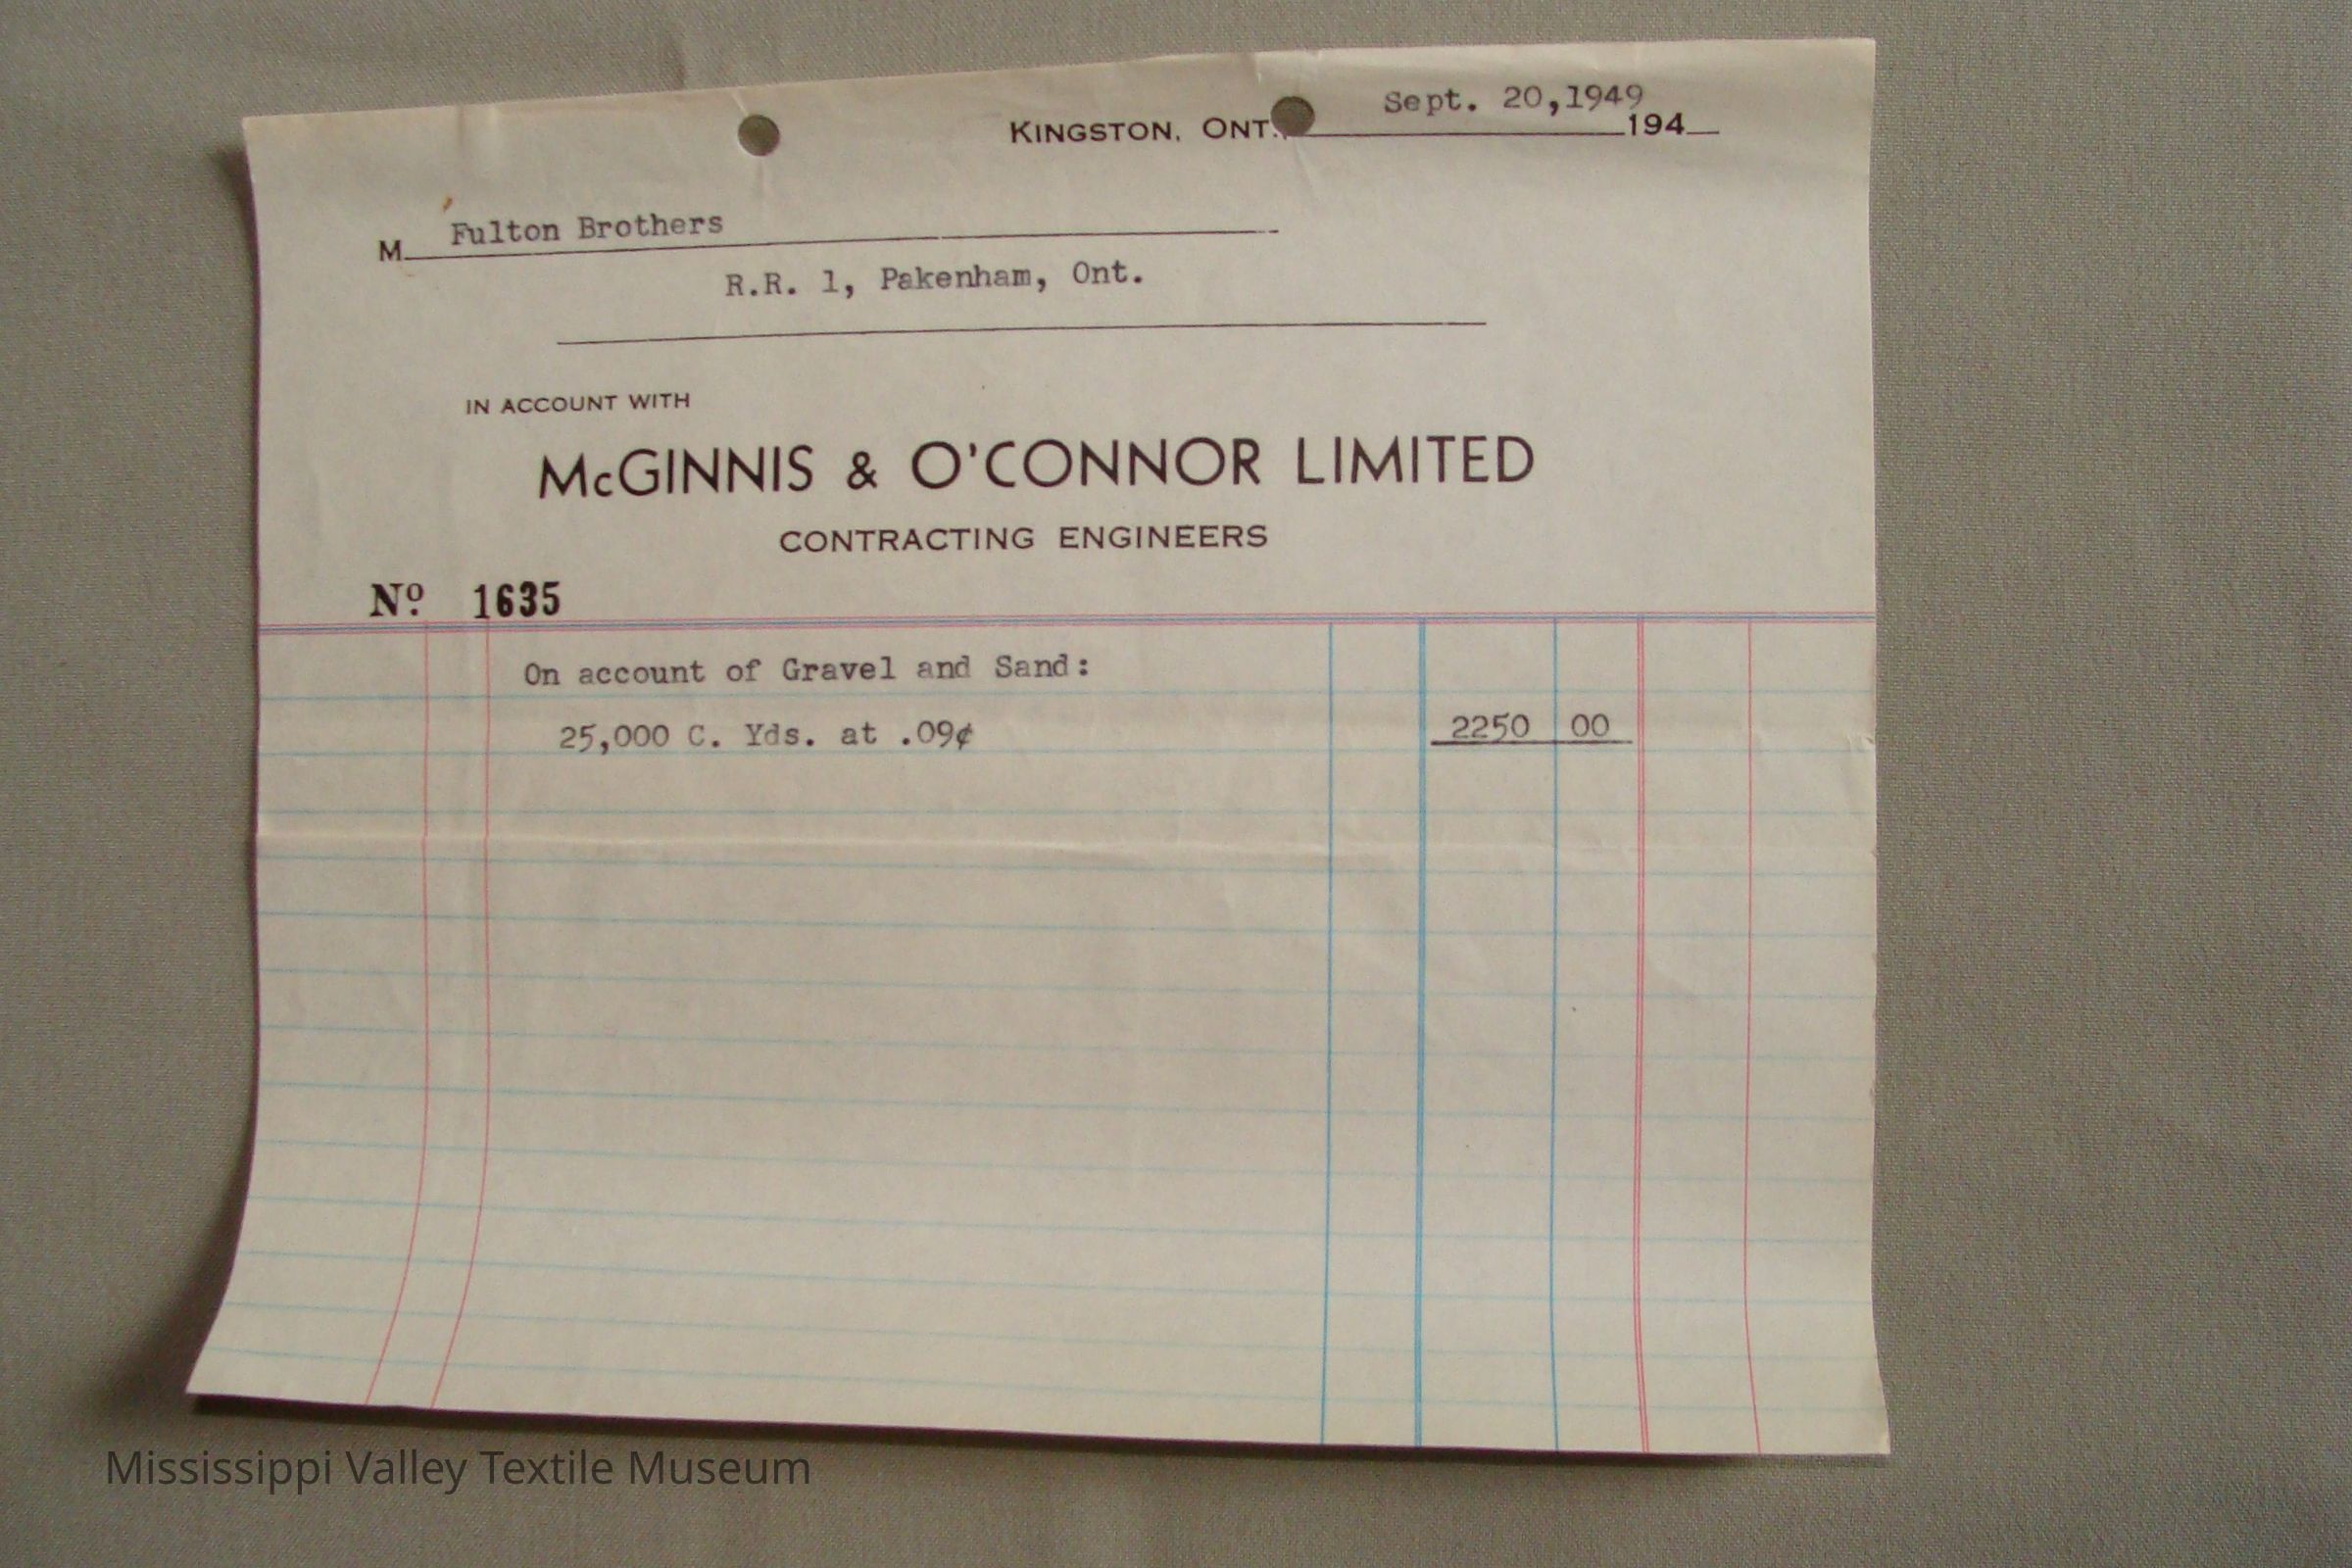 Sept. 20,1949
KINGSTON, ONT. 194
M Fulton Brothers
R.R. 1, Pakenham, Ont.
IN ACCOUNT WITH
McGINNIS & O'CONNOR LIMITED
CONTRACTING ENGINEERS
Nº 1635
On account of Gravel and Sand:
25,000 C. Yds. at .09¢ 2250 00
Mississippi Valley Textile Museum